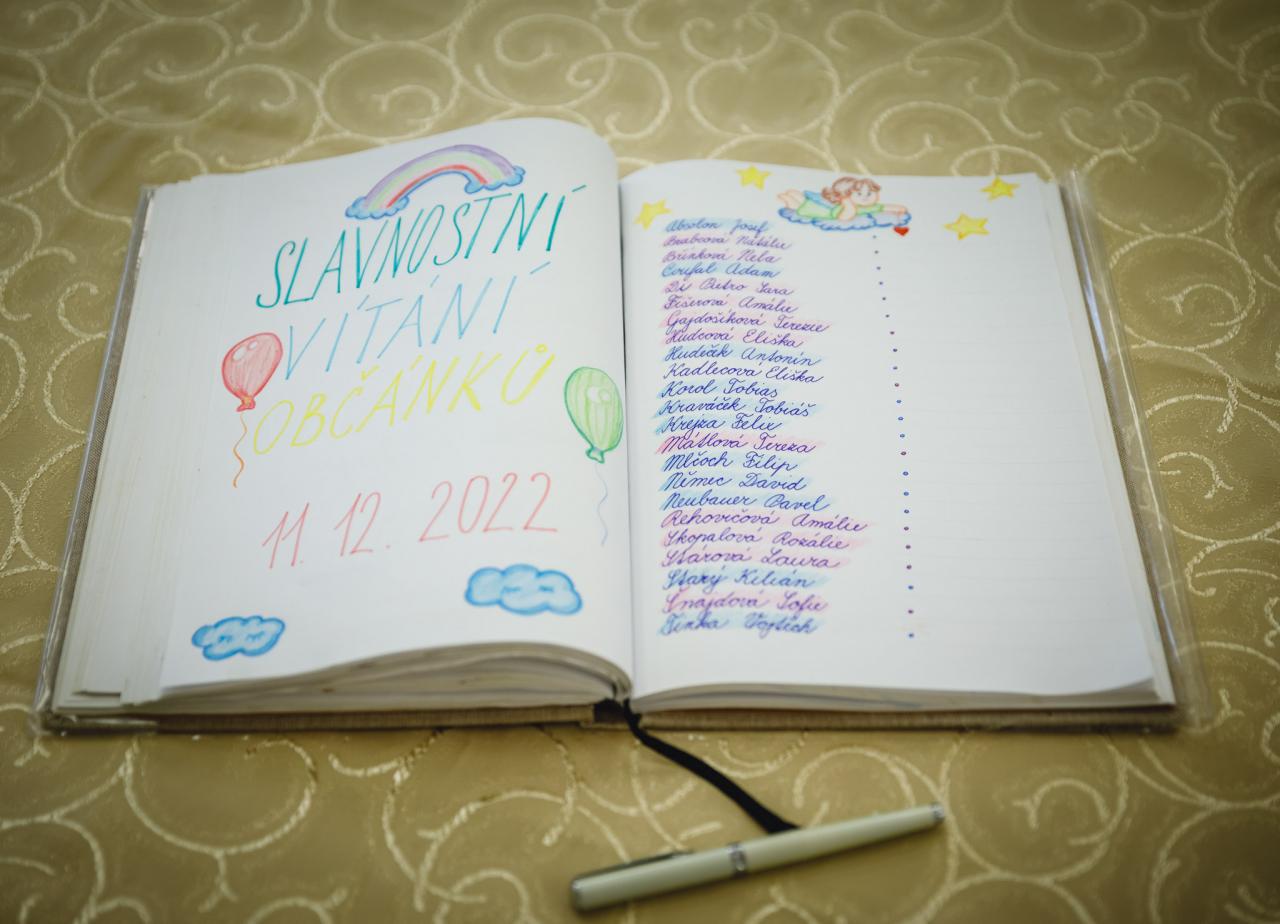 SLAVNOSTNÍ
VÍTÁNÍ
OBČÁNKŮ
11. 12. 2022
Absolon Josef
Brabcová Natálie
Brinková Nela
Coufal Adam
Di Pietro Sara
Fišerová Amálie
Gajdošíková Terezie
Hudcová Eliška
Hudeček Antonín
Kadlecová Eliška
Korol Tobias
Kraváček Tobiáš
Krejza Felix
Mátlová Tereza
Mlčoch Filip
Němec David
Neubauer Pavel
Řehovičová Amálie
Skopalová Rozálie
Stárová Laura
Starý Kilián
Šnajdová Sofie
Vojtěch